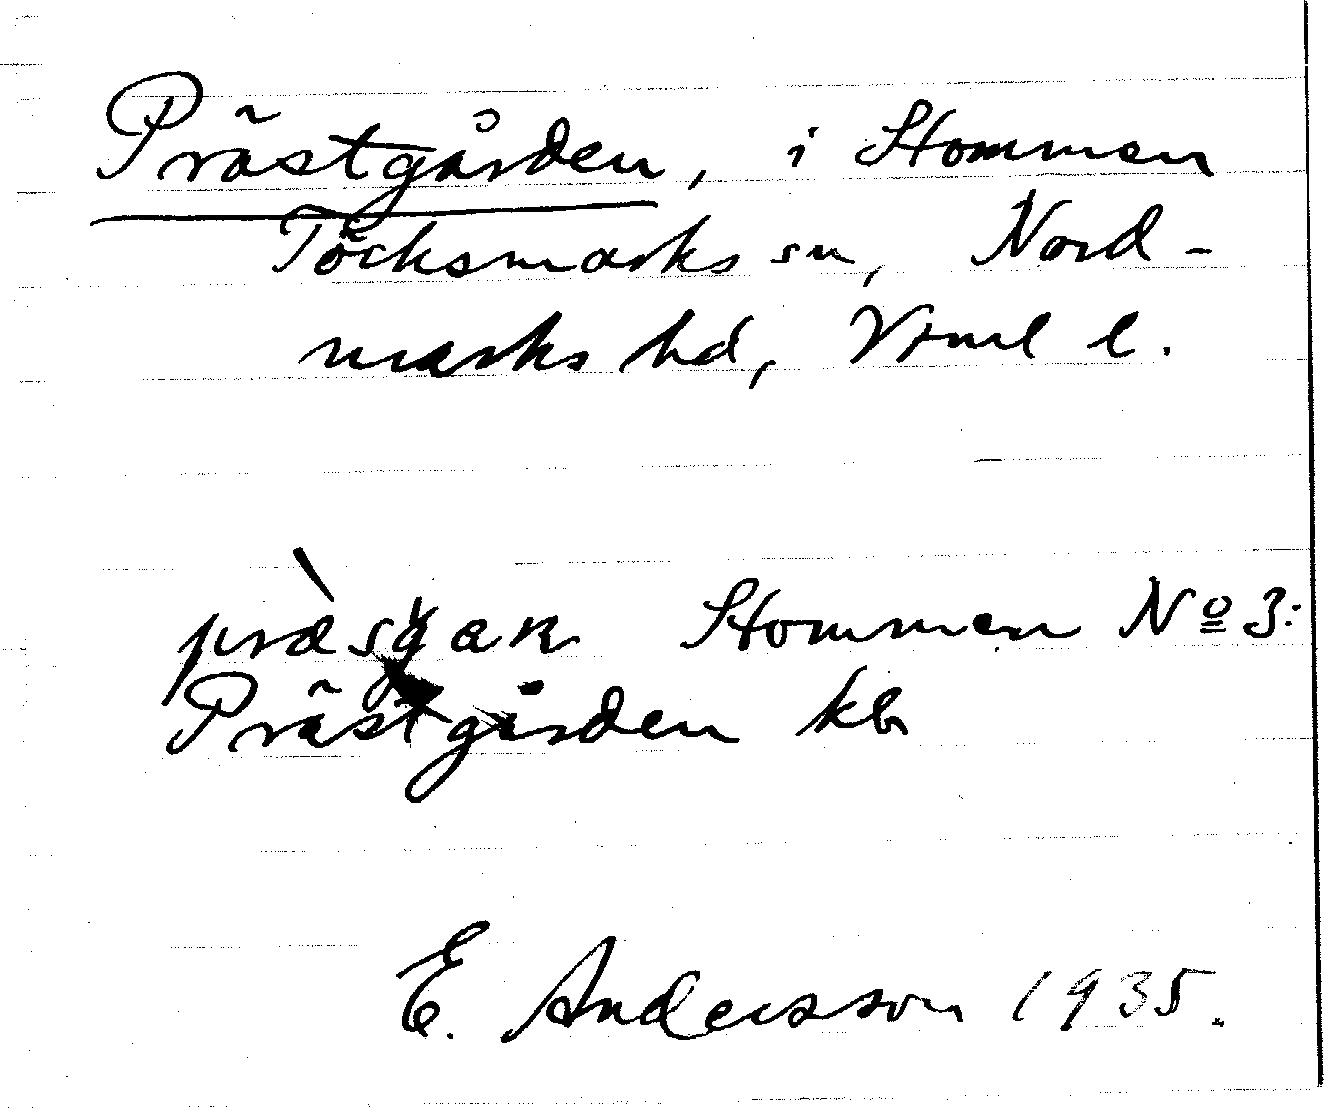 Prästgården, i Stommen
Töcksmarks sn, Nord-
marks hd, Vrml l.
Stommen Nº 3:
Prästgården kb
E. Andersson 1935.